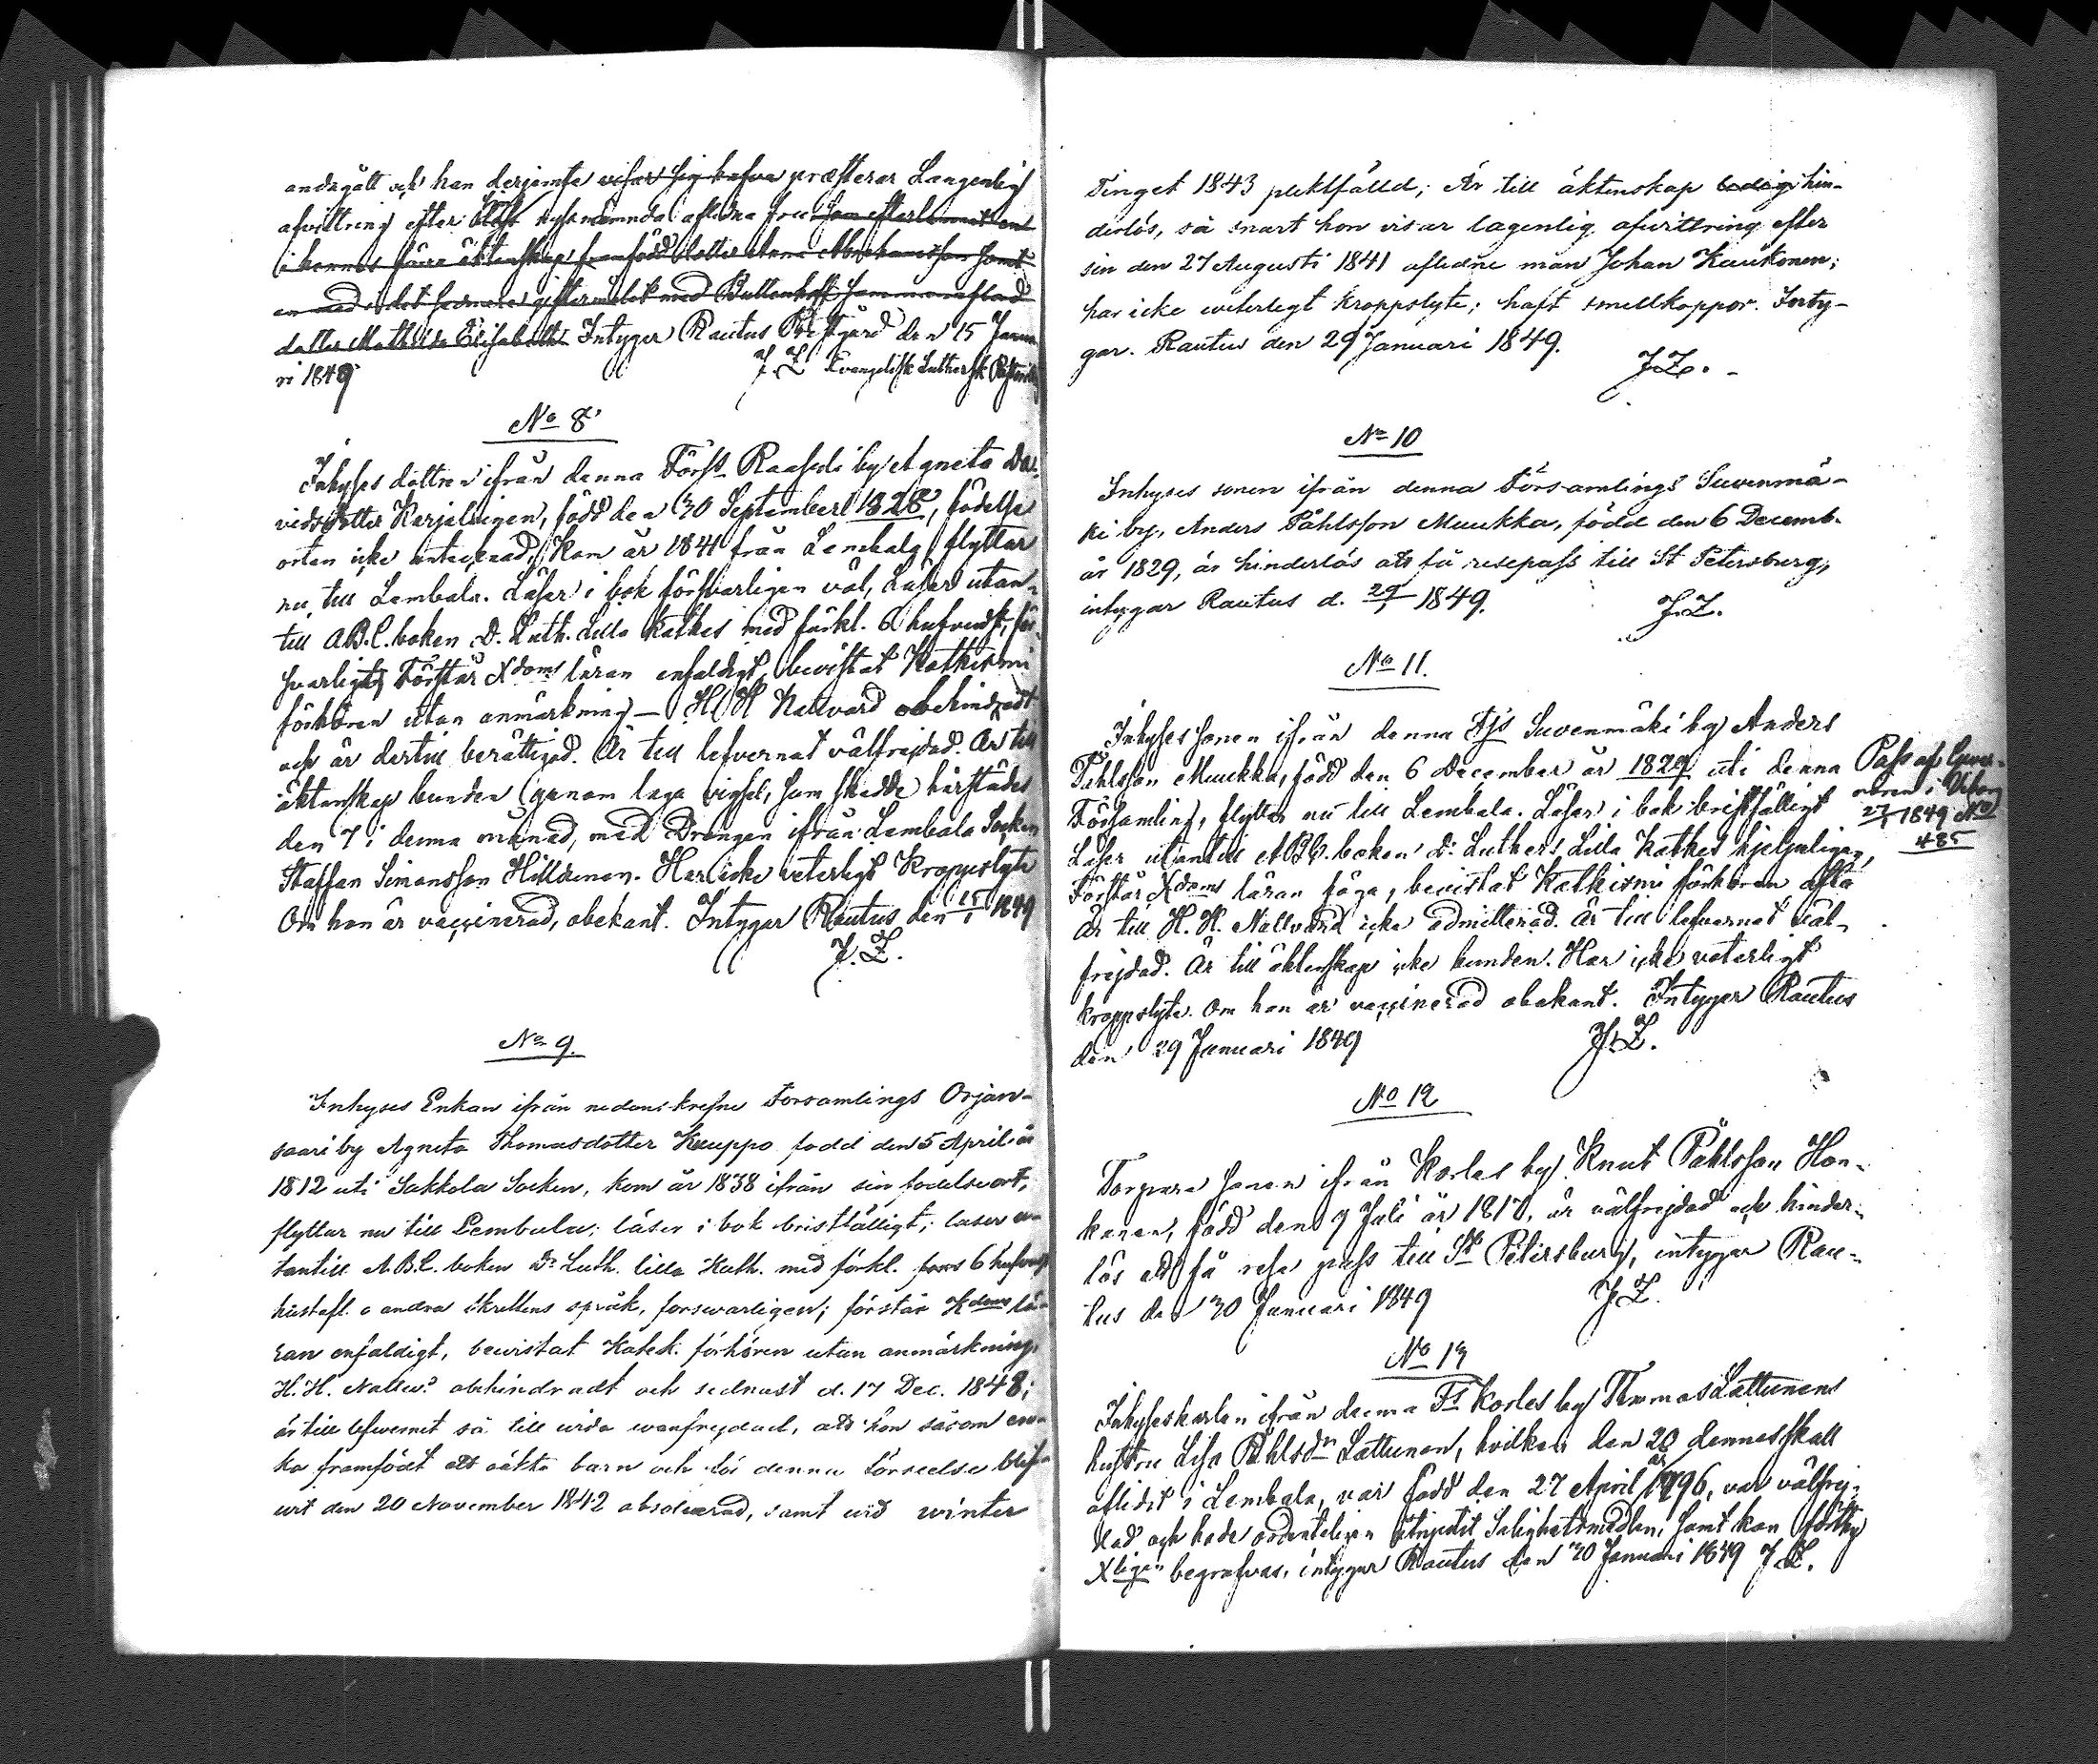 andragått och han derjemte visar sig hafva præsterar Langenlig
afvittring efter sin nyssnämnda aflidna fru som efterlemnat en
i hennes förra äktenskap framfödd dotter Anna Abrahamsson samt
en med i det sednare giftermålet med Bullenhoff sammanaflad
dotter Mathilda Elisabeth. Intygar Rautus Prestgård den 15 Janua
ri 1849 J. Z. Evangelisk Luthersk Pastor
No 8
Inhyses dottren ifrån denna Förs. Raasuli by Agneta Da-
vidsdotter Karjalainen, född den 30 September 1828, födelse
orten icke antecknad, Kom år 1841 från Lembala, flyttar
nu till Lembala. Läser i bok försvarligen väl, Läser utan-
till A.B.C. boken D. Luth. Lilla Katkes med förkl. 6 hufvudst. för-
svarligt, Förstår Xdoms läran enfaldigt, bevistat Katkismi
förhören utan anmärkning — H. H. Nattvard obehindradt
och är dertill berättigad. Är till lefvernat välfrejdad. Är till
äktenskap bunden genom laga vigsel, som skedde härstädes
den 7 i denna månad, med Drängen ifrån Lembala Socken
Staffan Simonsson Hilldenen. Har icke veterligt Kroppslyte
Om hon är vaccinerad, obekant. Intygar Rautus den 15/1 1849
J. Z.
No 9.
Inhyses Enkan ifrån nedanskrefne Forsamlings Orjan-
saari by Agneta Thomasdotter Kauppo född den 5 April år
1812 uti Sakkola Socken, kom år 1838 ifrån sin födelseort,
flyttar nu till Lembala; läser i bok bristfälligt; läser u-
tantill A.B.C. boken Dr Luth. lilla Kath. med förkl. 6 hufvudst
hustafl. o andra skriftens språk, forswarligen; förstår Xdoms lä-
ran enfaldigt, bewistat Katek. förhören utan anmärkning,
H. H. Nattw. obehindradt och sednast d. 17 Dec. 1848;
är till lefwernet så till wida wanfrejdad, att hon såsom en-
ka framfödt ett oäkta barn och för denna förseelse blif-
wit den 20 November 1842 absolverad, samt wid winter
Tinget 1843 pliktfälld; Är till äktenskap ledig hin-
derlös, så snart hon visar lagenlig afwittring efter
sin den 27 Augusti 1841 aflidne man Johan Kaukonen;
har icke weterlegt kroppslyte; haft smallkoppor. Inty-
gar. Rautus den 29 Januari 1849.
J.Z.
No 10
Inhyses sonen ifrån denna Församlings Suvenmä-
ki by, Anders Påhlsson Muukka, född den 6 Decemb.
år 1829, är hinderlös att få resepass till St Petersburg,
intygar Rautus d. 29/1 1849. J.Z.
No 11.
Inhyses sonen ifrån denna Fjs Suvenmäki by Anders
Påhlsson Muukka, född den 6 December år 1829 uti denna
Församling, flyttar nu till Lembala. Läser i bok bristfälligt
Läser utantill A.B.C. boken Dr Luthers Lilla Katkes hjelpeligen,
Förstår Xdoms läran föga, bevistat Katkismi förhören ofta
Är till H. H. Nattvard icke admitterad. Är till lefvernat väl-
frejdad. Är till äktenskap icke bunden. Har icke veterligt
kroppslyte. Om han är vaccinerad obekant. Intygar Rautus
den 29 Januari 1849 J.Z.
Pass af Guver-
nören i Viborg
27/1 1849 No
485
No 12
Torpare sonen ifrån Korles by Knut Påhlsson Hon-
kanen, född den 7 Juli år 1817, är välfrejdad och hinder-
lös att få rese pass till St Petersburg, intygar Rau-
tus den 30 Januari 1849 J.Z.
No 13
Inhyseskarlen ifrån denna Fs Korles by Thomas Lattunens
hustru Lisa Påhlsdr Lattunen, hvilken den 20 dennes skall
aflidit i Lembala, var född den 27 April år 1796, var välfrej-
dad och hade ordenteligen utnjutit Salighetsmedlen, samt kan förthy
Xligen begrafvas, intygar Rautus den 30 Januari 1849 J.Z.